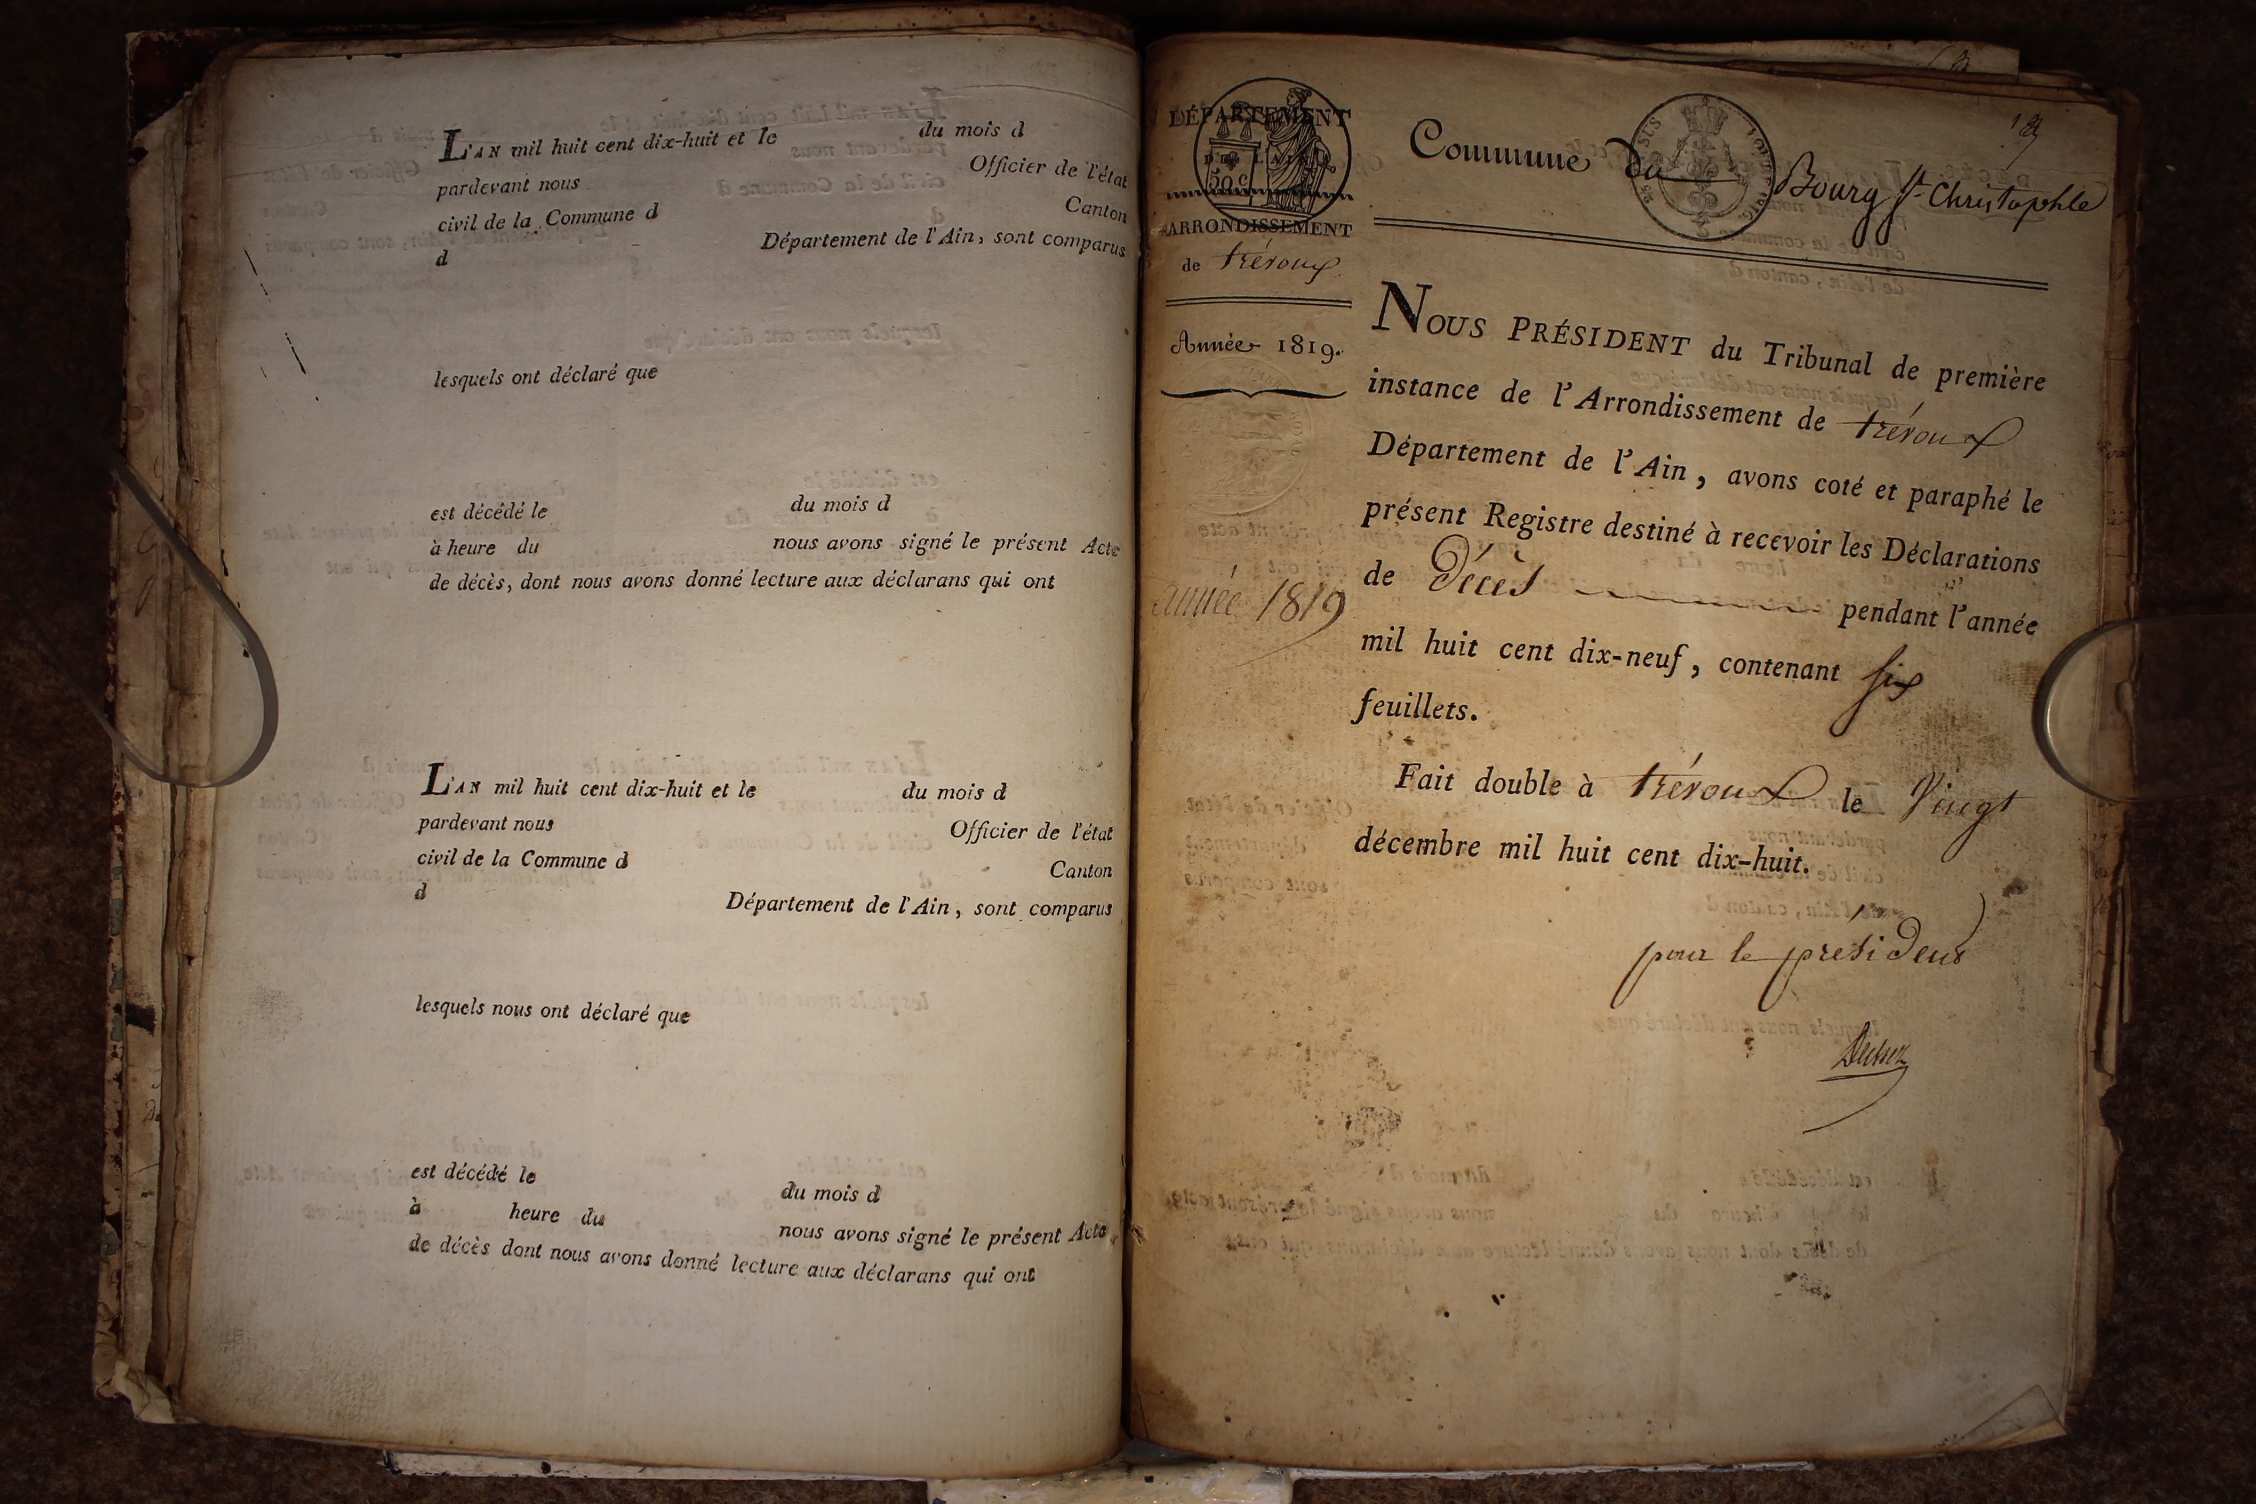 L'AN mil huit cent dix-huit et le du mois d
pardevant nous Officier de l'état
civil de la Commune d Canton
d Département de l'Ain, sont comparus
lesquels ont déclaré que
est décédé le du mois d
à heure du nous avons signé le présent Acte
de décès, dont nous avons donné lecture aux déclarans qui ont
L'AN mil huit cent dix-huit et le du mois d
pardevant nous Officier de l'état
civil de la Commune d Canton
d Département de l'Ain, sont comparus
lesquels nous ont déclaré que
est décédé le du mois d
à heure du nous avons signé le présent Acte
de décès dont nous avons donné lecture aux déclarans qui ont
DÉPARTEMENT
DE L'AIN
50 C
ARRONDISSEMENT
de trévoux
Année 1819.
année 1819
Commune du Bourg St Christophle
NOUS PRÉSIDENT du Tribunal de première
instance de l'Arrondissement de trévoux
Département de l'Ain, avons coté et paraphé le
présent Registre destiné à recevoir les Déclarations
de Décès pendant l'année
mil huit cent dix-neuf, contenant six
feuillets.
Fait double à trévoux le Vingt
décembre mil huit cent dix-huit.
pour le président